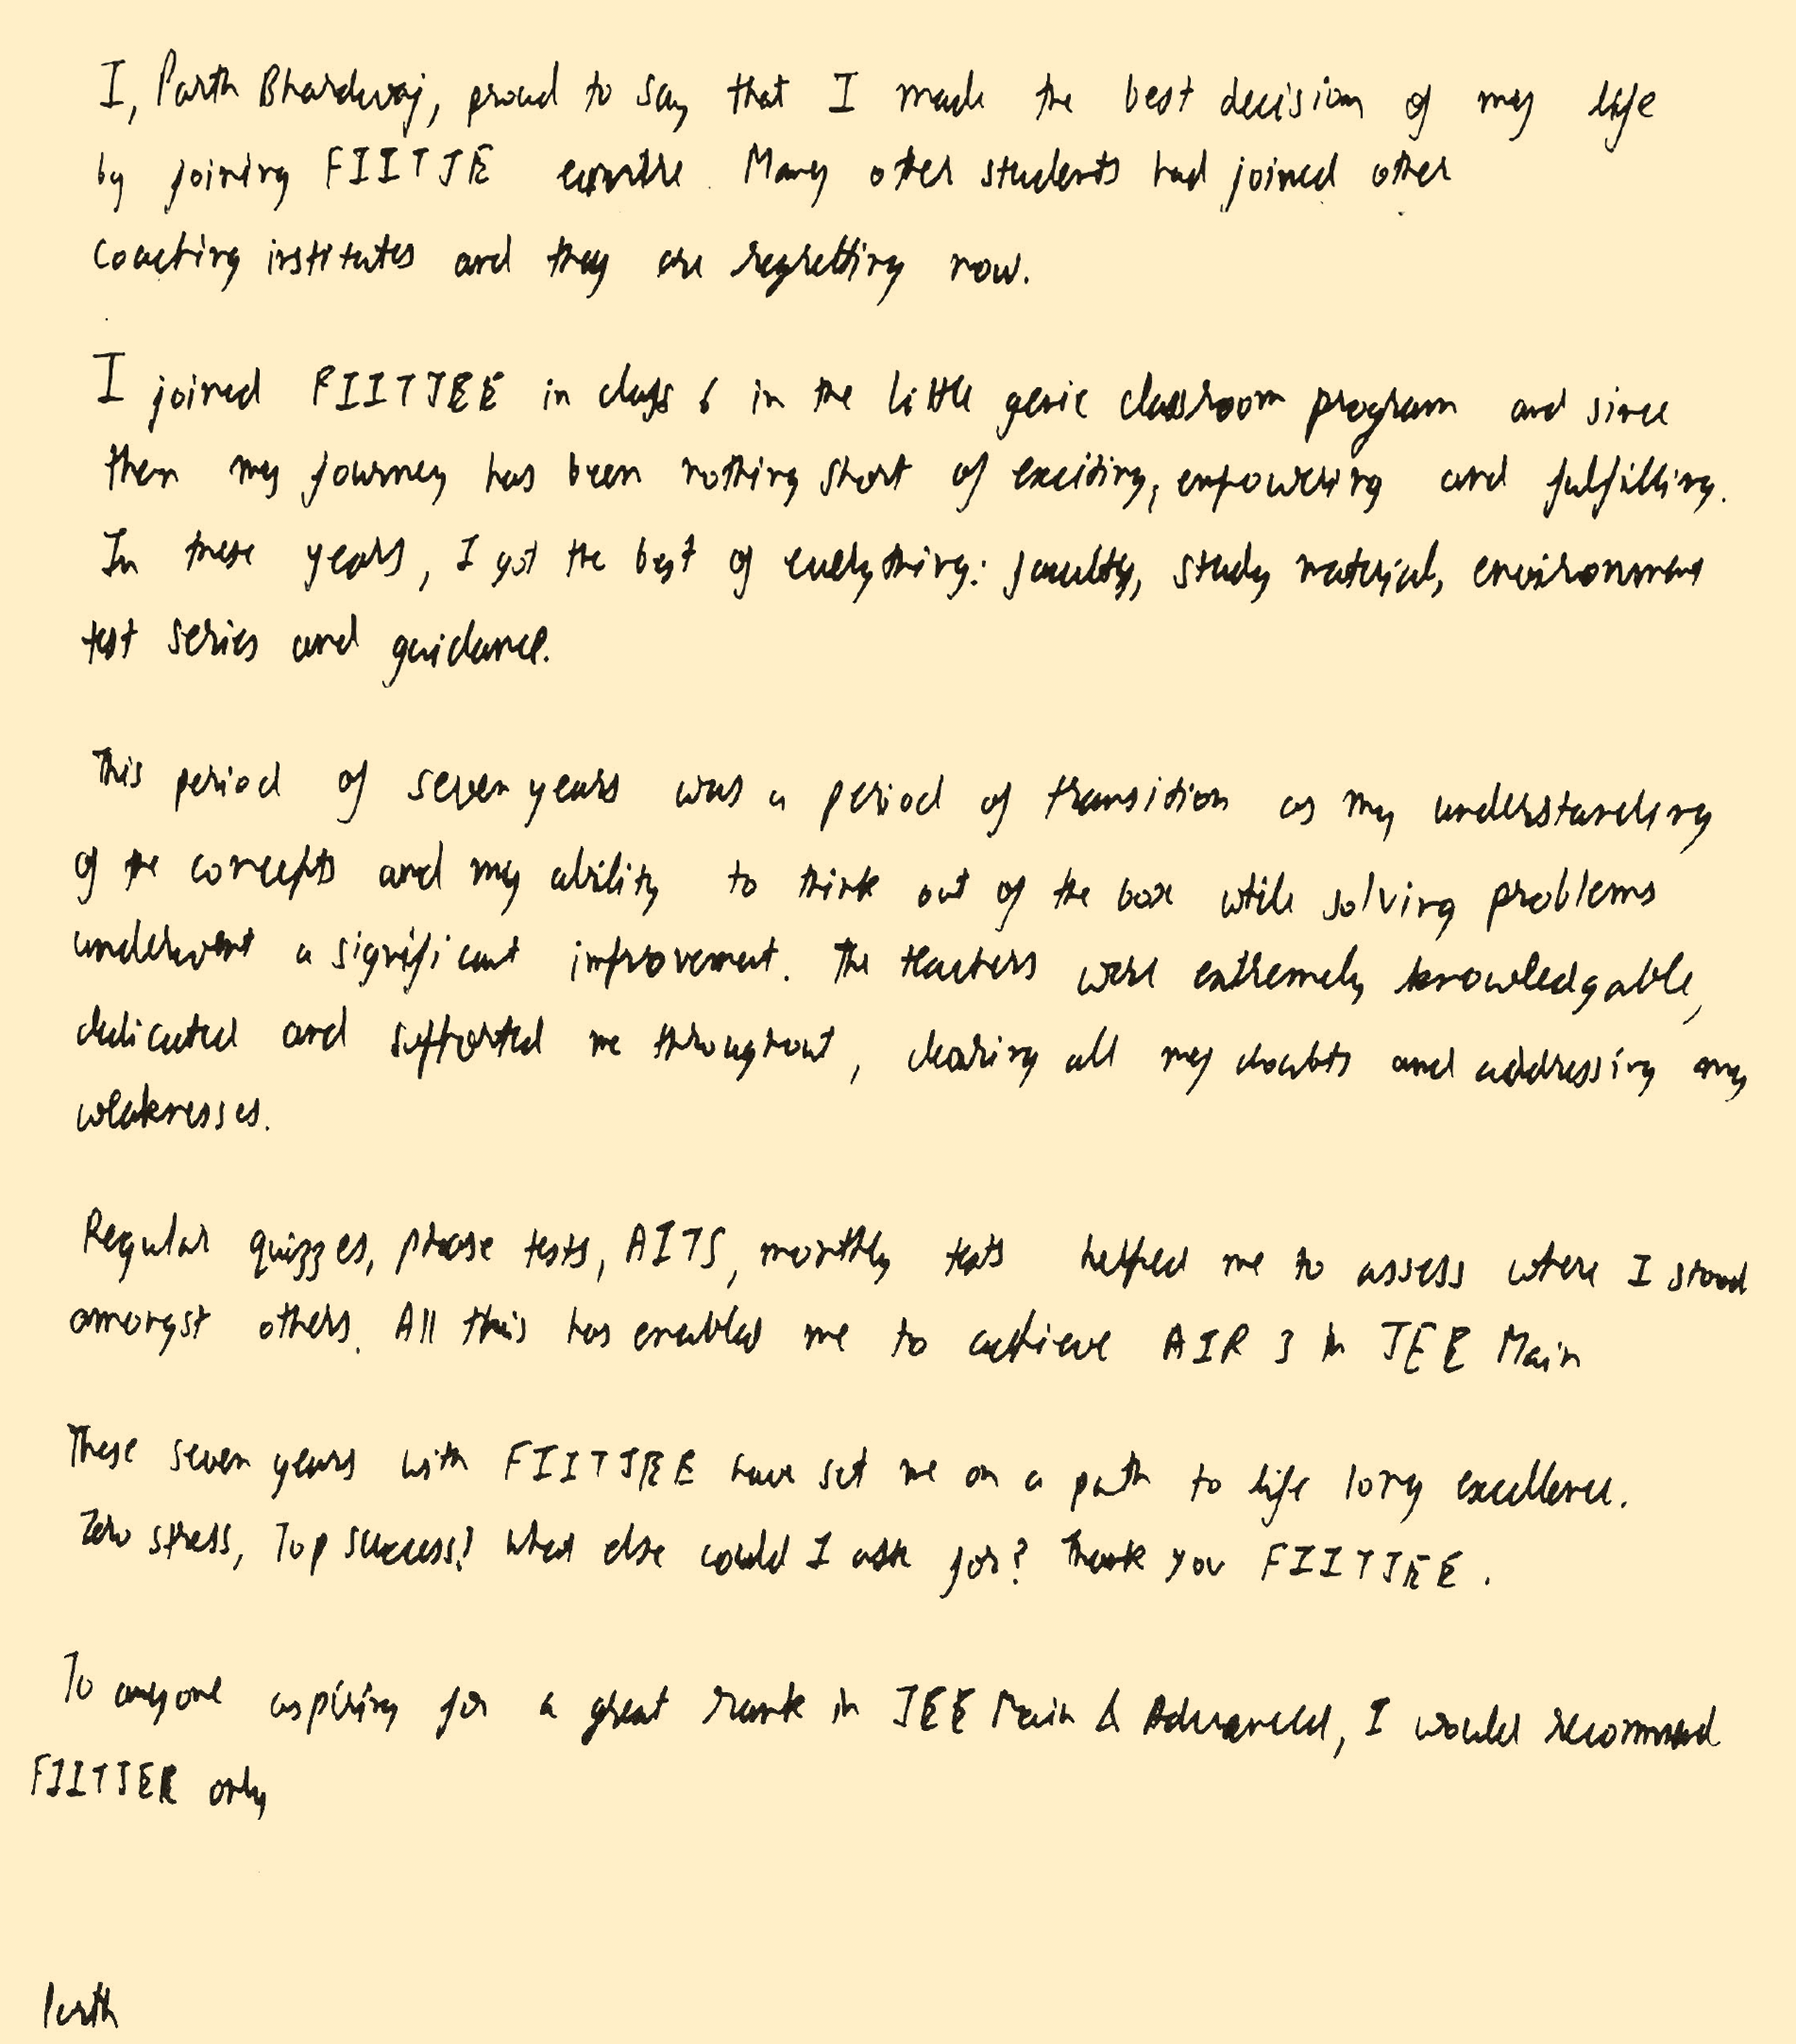 I, Parth Bhardwaj, proud to say that I made the best decision of my life
by joining FIITJE. Many other students had joined other
coaching institutes and they are regretting now.
I joined FIITJEE in class 6 in the little genie classroom program and since
then my journey has been nothing short of exciting, empowering and fulfilling.
In these years, I got the best of everything: faculty, study material, environment
test series and guidance.
This period of seven years was a period of transition as my understanding
of the concepts and my ability to think out of the box while solving problems
underwent a significant improvement. The teachers were extremely knowledgable,
dedicated and supported me throughout, clearing all my doubts and addressing my
weaknesses.
Regular quizzes, phase tests, AITS, monthly tests helped me to assess where I stood
amongst others. All this has enabled me to achieve AIR 3 in JEE Main
These seven years with FIITJEE have set me on a path to life long excellence.
Zero stress, Top success! What else could I ask for? Thank you FIITJEE.
To anyone aspiring for a great rank in JEE Main & Advanced, I would recommend
FIITJEE only
Parth